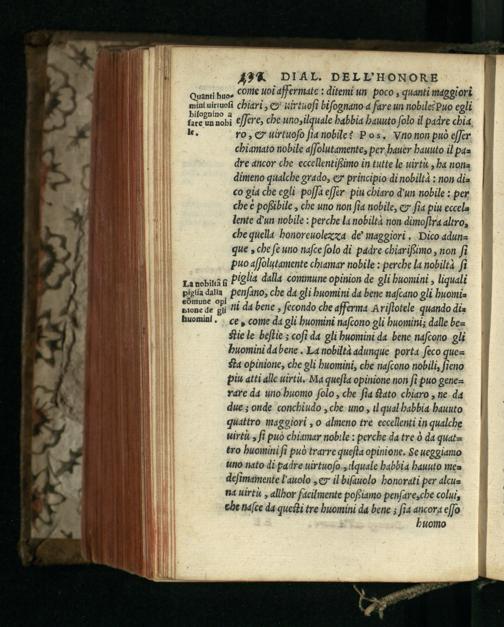 DIAL. DELL'HONORE
Quanti huo-
mini uirtuosi
bisognano a
fare un nobi
le.
come uoi affermate: ditemi un poco, quanti maggiori
chiari, & uirtuosi bisognano a fare un nobile? Puo egli
essere, che uno, ilquale habbia hauuto solo il padre chia
ro, & uirtuoso sia nobile? POS. Vno non può esser
chiamato nobile assolutamente, per hauer hauuto il pa=
dre ancor che eccellentißimo in tutte le uirtù, ha non=
dimeno qualche grado, & principio di nobiltà: non di=
co gia che egli possa esser piu chiaro d'un nobile: per
che è poßibile, che uno non sia nobile, & sia piu eccel=
lente d'un nobile: perche la nobiltà non dimostra altro,
che quella honoreuolezza de' maggiori. Dico adun=
que, che se uno nasce solo di padre chiarißimo, non si
puo assolutamente chiamar nobile: perche la nobiltà si
La nobiltà si
piglia dalla
comune opi
nione de gli
huomini.
piglia dalla commune opinion de gli huomini, liquali
pensano, che da gli huomini da bene nascano gli huomi=
ni da bene, secondo che afferma Aristotele quando di=
ce, come da gli huomini nascono gli huomini; dalle be=
stie le bestie; così da gli huomini da bene nascono gli
huomini da bene. La nobiltà adunque porta seco que=
sta opinione, che gli huomini, che nascono nobili, sieno
piu atti alle uirtù. Ma questa opinione non si puo gene=
rare da uno huomo solo, che sia stato chiaro, ne da
due; onde conchiudo, che uno, il qual habbia hauuto
quattro maggiori, o almeno tre eccellenti in qualche
uirtù, si può chiamar nobile: perche da tre ò da quat=
tro huomini si può trarre questa opinione. Se ueggiamo
uno nato di padre uirtuoso, ilquale habbia hauuto me=
desimamente l'auolo, & il bisauolo honorati per alcu=
na uirtù, allhor facilmente poßiamo pensare, che colui,
che nasce da questi tre huomini da bene; sia ancora esso
huomo